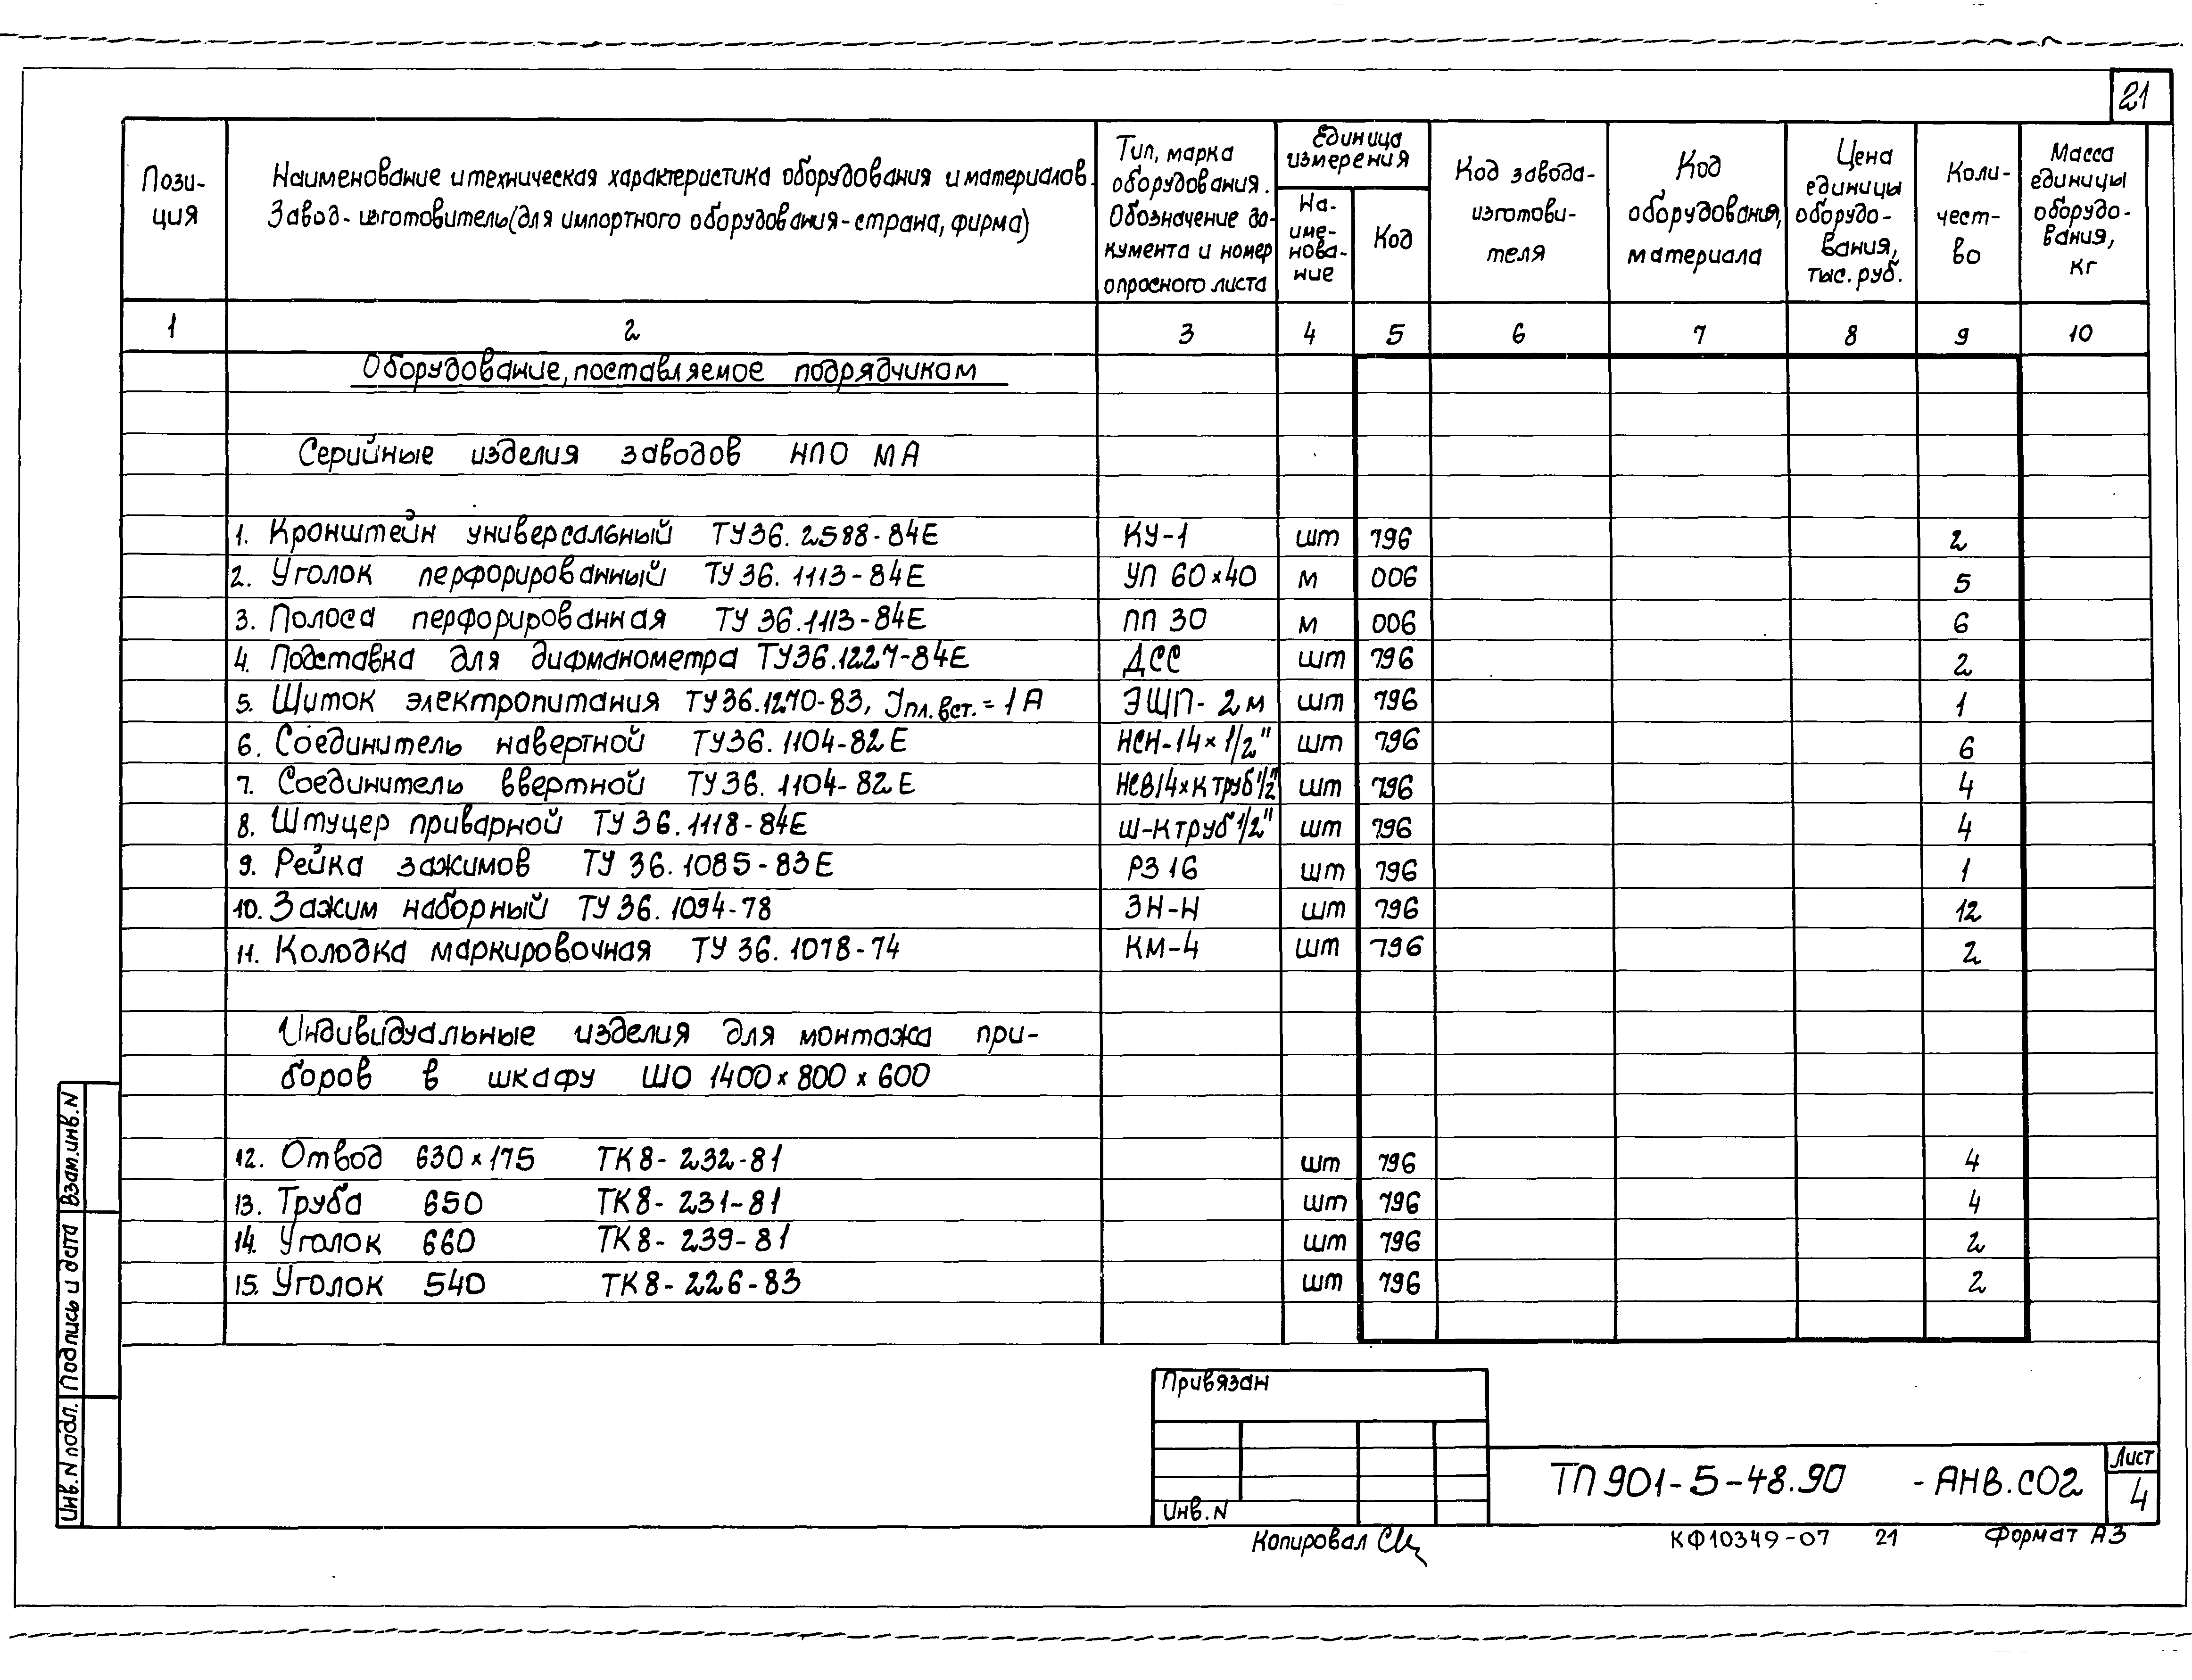 21
Пози-
ция
Наименование и техническая характеристика оборудования и материалов.
Завод-изготовитель (для импортного оборудования-страна, фирма)
Тип, марка
оборудования.
Обозначение до-
кумента и номер
опросного листа
Единица
измерения
На-
име-
нова-
ние
Код
Код завода-
изготови-
теля
Код
оборудования,
материала
Цена
единицы
оборудо-
вания,
тыс. руб.
Коли-
чест-
во
Масса
единицы
оборудо-
вания,
кг
1 2 3 4 5 6 7 8 9 10
Оборудование, поставляемое подрядчиком
Серийные изделия заводов НПО МА
1. Кронштейн универсальный ТУ36.2588-84Е КУ-1 шт 796 2
2. Уголок перфорированный ТУ36.1113-84Е УП 60×40 м 006 5
3. Полоса перфорированная ТУ 36.1113-84Е ПП 30 м 006 6
4. Подставка для дифманометра ТУ36.1227-84Е ДСС шт 796 2
5. Щиток электропитания ТУ36.1270-83, Jпл.вст.=1А ЭЩП-2м шт 796 1
6. Соединитель навертной ТУ36.1104-82Е НСН-14×1/2" шт 796 6
7. Соединитель ввертной ТУ36.1104-82Е НСВ14×К труб 1/2" шт 796 4
8. Штуцер приварной ТУ36.1118-84Е Ш-К труб 1/2" шт 796 4
9. Рейка зажимов ТУ 36.1085-83Е РЗ 16 шт 796 1
10. Зажим наборный ТУ36.1094-78 ЗН-Н шт 796 12
11. Колодка маркировочная ТУ 36.1078-74 КМ-4 шт 796 2
Индивидуальные изделия для монтажа при-
боров в шкафу ШО 1400×800×600
12. Отвод 630×175 ТК8-232-81 шт 796 4
13. Труба 650 ТК8-231-81 шт 796 4
14. Уголок 660 ТК8-239-81 шт 796 2
15. Уголок 540 ТК8-226-83 шт 796 2
Взам.инв.N
Подпись и дата
Инв.N подл.
Привязан
Инв.N
ТП 901-5-48.90 -АНВ.СО2
Лист
4
Копировал
КФ10349-07 21 Формат А3